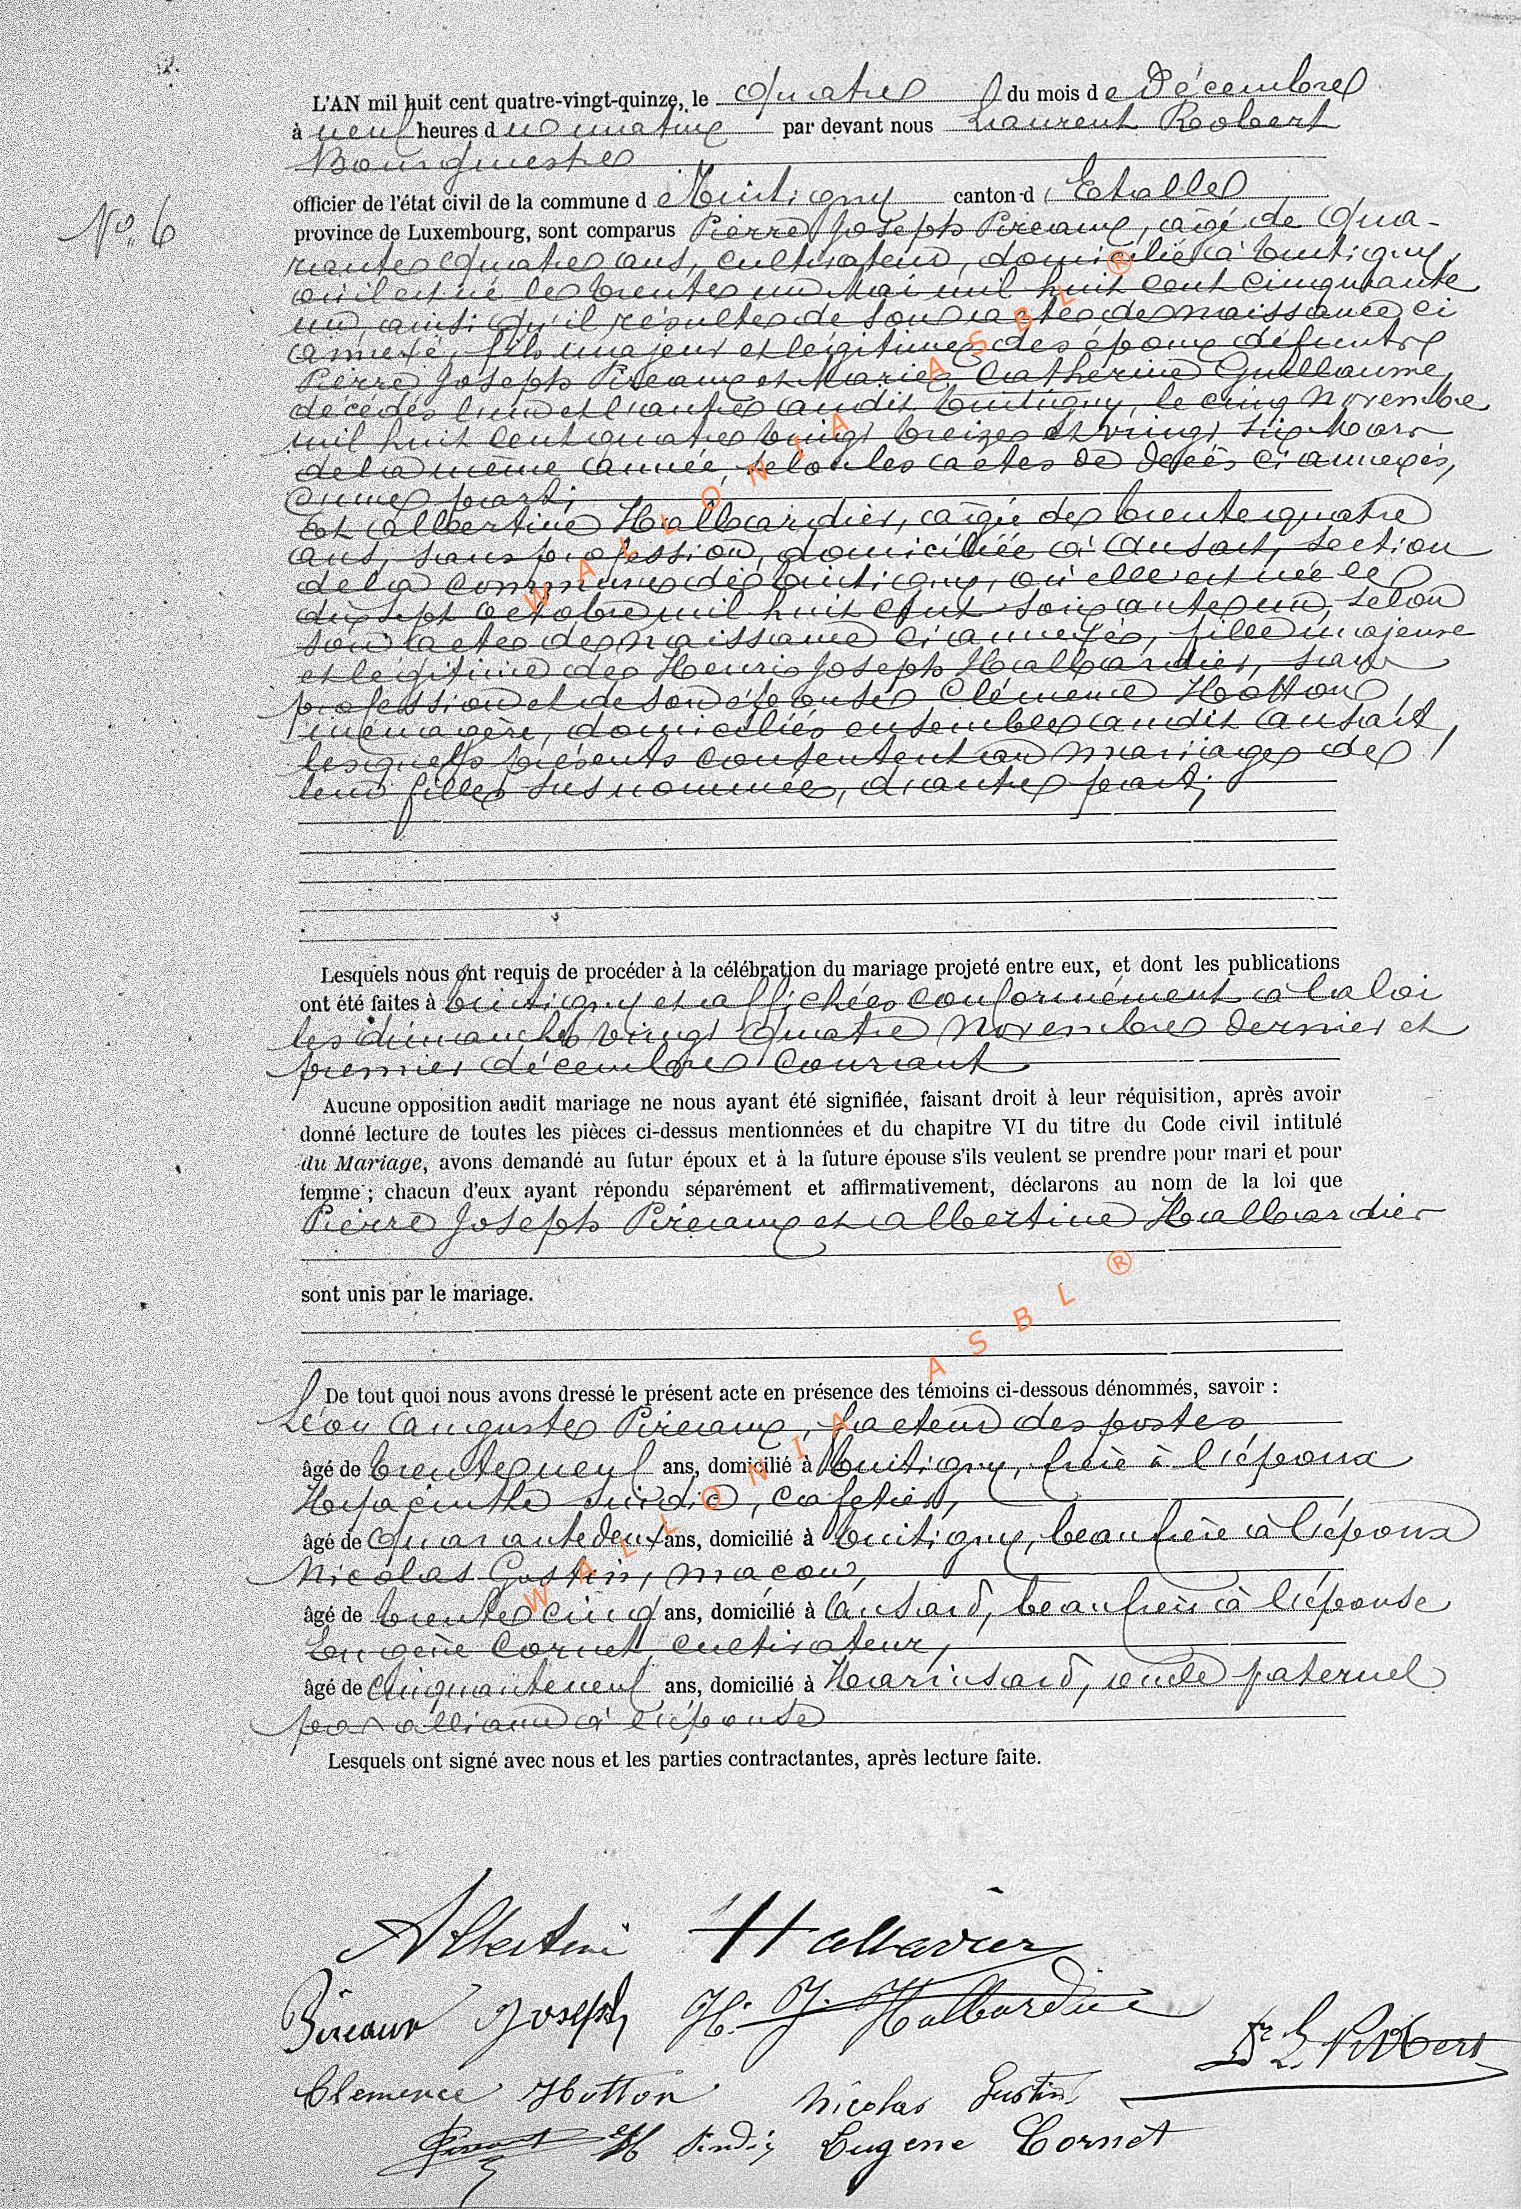 L'AN mil huit cent quatre-vingt-quinze, le quatre du mois de Décembre
à neuf heures du matin par devant nous Laurent Robert
Bourgmestre
officier de l'état civil de la commune de Tintigny canton d' Etalle
Nº 6
province de Luxembourg, sont comparus Pierre Joseph Pireaux, âgé de qua-
rante quatre ans, cultivateur, domicilié à Tintigny,
où il est né le trente un Mai mil huit cent cinquante
un, ainsi qu'il résulte de son acte de naissance ci
annexé, fils majeur et légitime des époux défunts
Pierre Joseph Pireaux et Marie Catherine Guillaume,
décédés l'un et l'autre audit Tintigny, le cinq Novembre
mil huit cent quatre vingt treize et vingt six Mars
de la même année, selon les actes de décès ci annexés,
d'une part;
Et Albertine Halbardier, âgée de trente quatre
ans, sans profession, domiciliée à Ansart, section
de la commune de Tintigny, où elle est née le
dix sept octobre mil huit cent soixante un, selon
son acte de naissance ci annexé, fille majeure
et légitime de Henri Joseph Halbardier, sans
profession et de son épouse Clémence Hotton,
ménagère, domiciliés ensemble audit Ansart,
lesquels présents consentent au mariage de
leur fille susnommée, d'autre part;
Lesquels nous ont requis de procéder à la célébration du mariage projeté entre eux, et dont les publications
ont été faites à Tintigny et affichées conformément à la loi
les dimanches vingt quatre Novembre dernier et
premier décembre courant
Aucune opposition audit mariage ne nous ayant été signifiée, faisant droit à leur réquisition, après avoir
donné lecture de toutes les pièces ci-dessus mentionnées et du chapitre VI du titre du Code civil intitulé
du Mariage, avons demandé au futur époux et à la future épouse s'ils veulent se prendre pour mari et pour
femme ; chacun d'eux ayant répondu séparément et affirmativement, déclarons au nom de la loi que
Pierre Joseph Pireaux et Albertine Halbardier
sont unis par le mariage.
De tout quoi nous avons dressé le présent acte en présence des témoins ci-dessous dénommés, savoir :
Léon Auguste Pireaux, facteur des postes,
âgé de trente neuf ans, domicilié à Tintigny, frère à l'époux
Hyacinthe Sindic, cafetier,
âgé de quarante deux ans, domicilié à Tintigny, beau frère à l'époux
Nicolas Gustin, maçon,
âgé de trente cinq ans, domicilié à Ansard, beau frère à l'épouse
Eugène Cornet, cultivateur,
âgé de cinquante neuf ans, domicilié à Harinsard, oncle paternel
par alliance à l'épouse
Lesquels ont signé avec nous et les parties contractantes, après lecture faite.
Albertine Halbardier
Pireaux Joseph H. J. Halbardier
Dr L Robert
Clemence Hotton Nicolas Gustin
Pireaux H Sindic Eugene Cornet
WALLONIA ASBL ®
WALLONIA ASBL ®